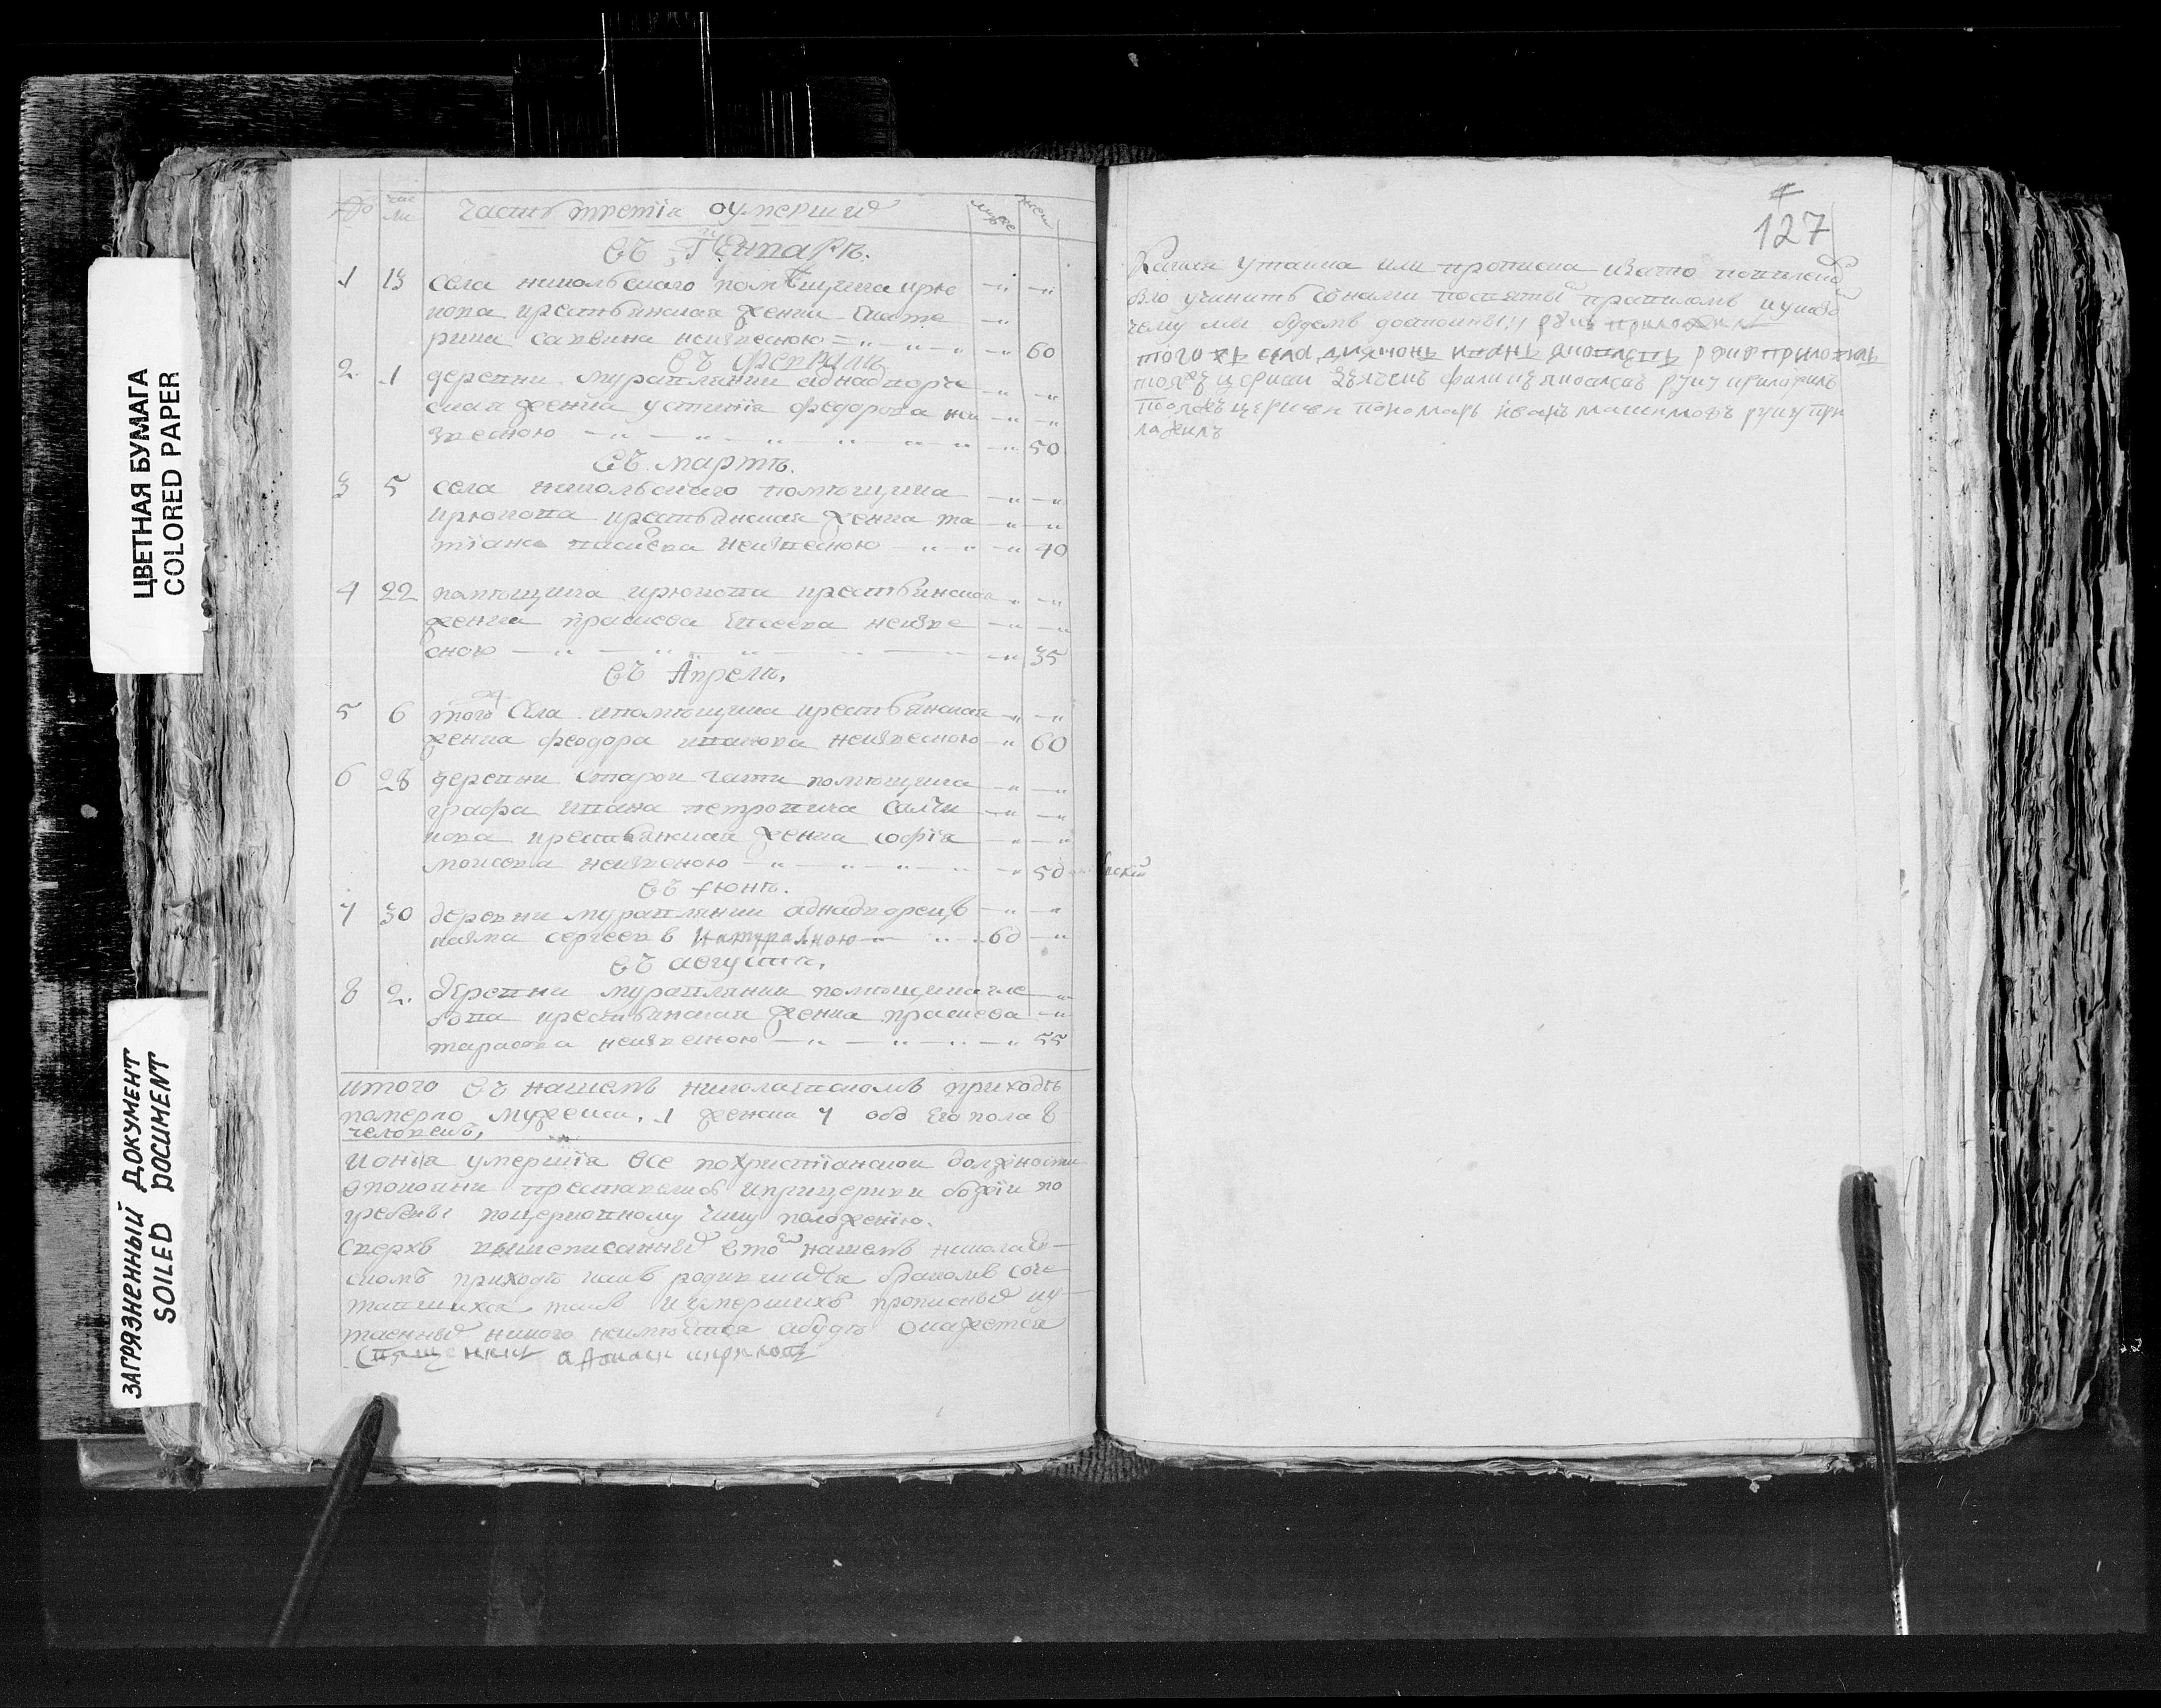 ЦВЕТНАЯ БУМАГА
COLORED PAPER
ЗАГРЯЗНЕННЫЙ ДОКУМЕНТ
SOILED DOCUMENT
№ чис ла часть третія оумершихъ муж жен
въ Генваръ.
1 13 села никольскаго помѣщика крю
кова крестьянская женка Екате
рина саввина неизвесною 60
въ февралъ
2 1 деревни муравлянки аднадворче
ская жена устинія федорова неи
звесною 50
въ мартъ.
3 5 села никольскаго помъщика
крюкова крестьянская женка та
тіана неизвесною 40
4 22 помъщика крюкова крестьянская
женка прасковя неизве
сною 35
въ Апрелъ.
5 6 того ж села и помъщика крестьянская
женка феодора неизвесною 60
6 28 деревни старои гати помъщика
графа ивана петровича салты
кова крестьянская женка софія
моисева неизвесною 50
въ іюнъ.
7 30 деревни муравлянки аднадворецъ
козма сергеевъ натуралною 60
въ августа.
8 2. деревни муравлянки помъщика гле
бова крестьянская женка прасковя
тарасова неизвесною 55
итого въ нашемъ николаевскомъ приходъ
померло мужеска 1 женска 7 обоего пола 8
человекъ,
и оніія умершіія все по христіанскои должности
покоини преставелись и при церкви божіи по
гребены по церковному чину положенію.
сверхъ вышеписанныхъ в том нашемъ николаев-
скомъ приходъ какъ родившихся бракомъ соче-
тавшихся такъ и умершихъ прописныхъ и у-
таенныхъ никого неимъется а будъ окажется
Священникъ
127
Какая утаика или прописка и за то поступлено
было учинить с нами по святымъ правиломъ и указом
чему мы будемъ достоины руку приложил
того ж села дияконъ иванъ яковлевъ руку приложилъ
тояжъ церкви дьячекъ яковлевъ руку приложилъ
тояжъ церкви пономарь иванъ максимовъ руку при
ложилъ